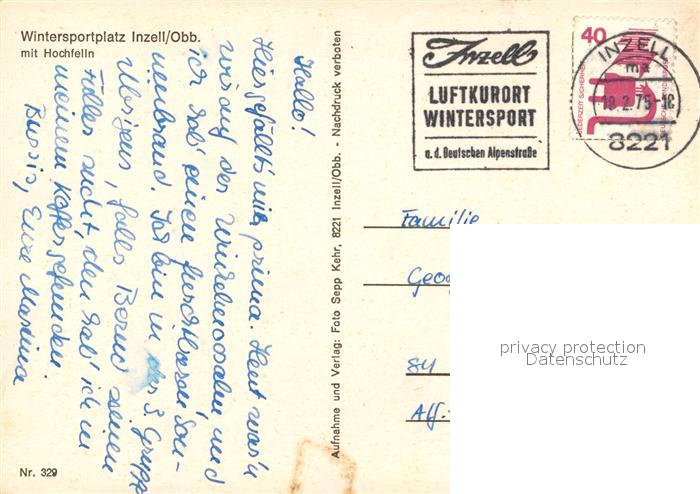 Wintersportplatz Inzell/Obb.
mit Hochfelln
Hallo!
Hier gefällt's mir prima. Heut war'n
wir auf der Windelmoosalm, und
ich hab' einen furchtbaren Son-
nenbrand. Ich bin in der 3. Gruppe
Übrigens, falls Bernd seinen
Füller sucht, den hab' ich in
meinem Koffer gefunden.
Bussis, Eure Martina
Nr. 329
Aufnahme und Verlag: Foto Sepp Kehr, 8221 Inzell/Obb. - Nachdruck verboten
Inzell
LUFTKURORT
WINTERSPORT
a. d. Deutschen Alpenstraße
40
JEDERZEIT SICHERHEIT
INZELL
18.2.75-16
8221
Familie
Geo
84
privacy protection
Datenschutz